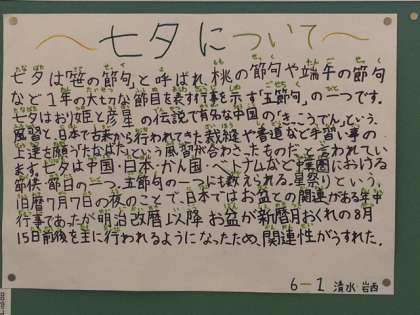 ～七夕について～
七夕は「笹の節句」と呼ばれ、桃の節句や端午の節句
など1年の大切な節目を表す行事を示す「五節句」の一つです。
七夕はおり姫と彦星の伝説で有名な中国の「きっこうでん」という
風習と、日本で古来から行われてきた裁縫や書道など手習い事の
上達を願うたなばたという風習が合わさったものだと言われてい
ます。七夕は中国・日本・かん国・ベトナムなど における
節供・節日の一つ。五節句の一つにも数えられる。星祭りという。
旧暦7月7日の夜のことで、日本ではお盆との関連がある年中
行事であったが明治改暦以降、お盆が新暦月おくれの8月
15日前後を主に行われるようになったため、関連性がうすれた。
6-1 清水 岩西